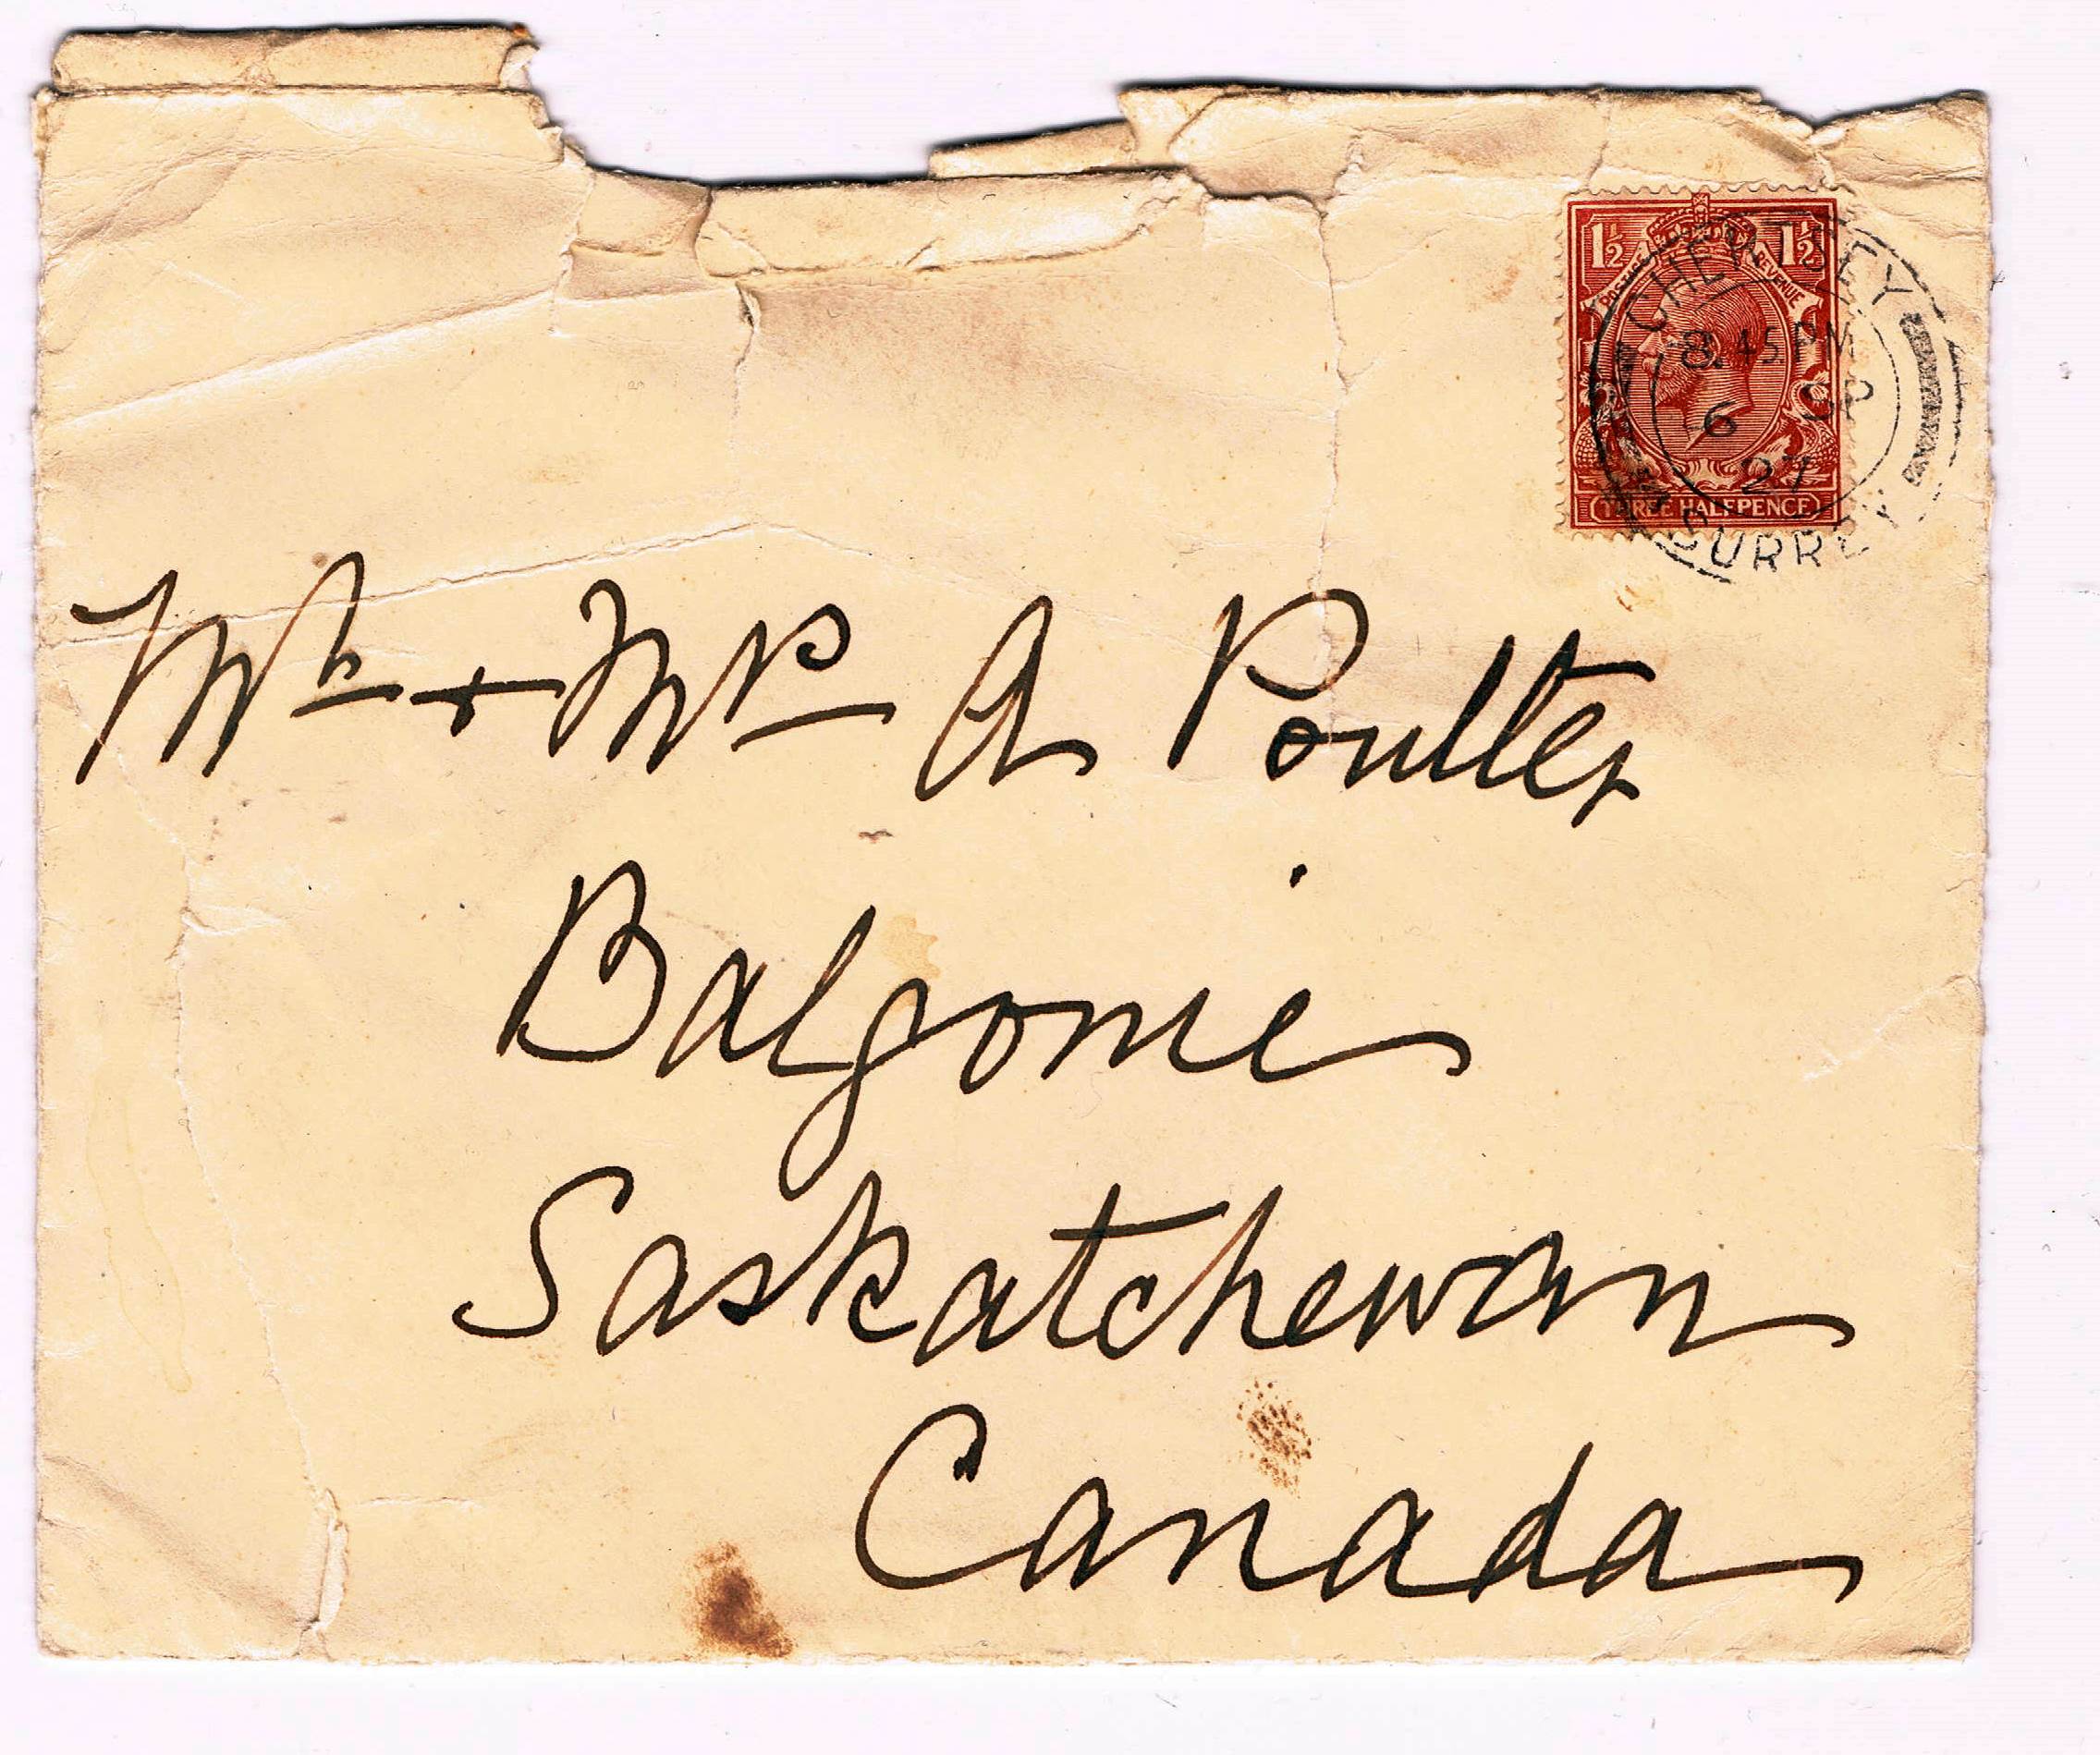 1½ 1½
POSTAGE REVENUE
THREE HALFPENCE
CHERTSEY
8.45 PM
6 SP
27
SURREY
Mr + Mrs A Poulter
Balgonie
Saskatchewan
Canada